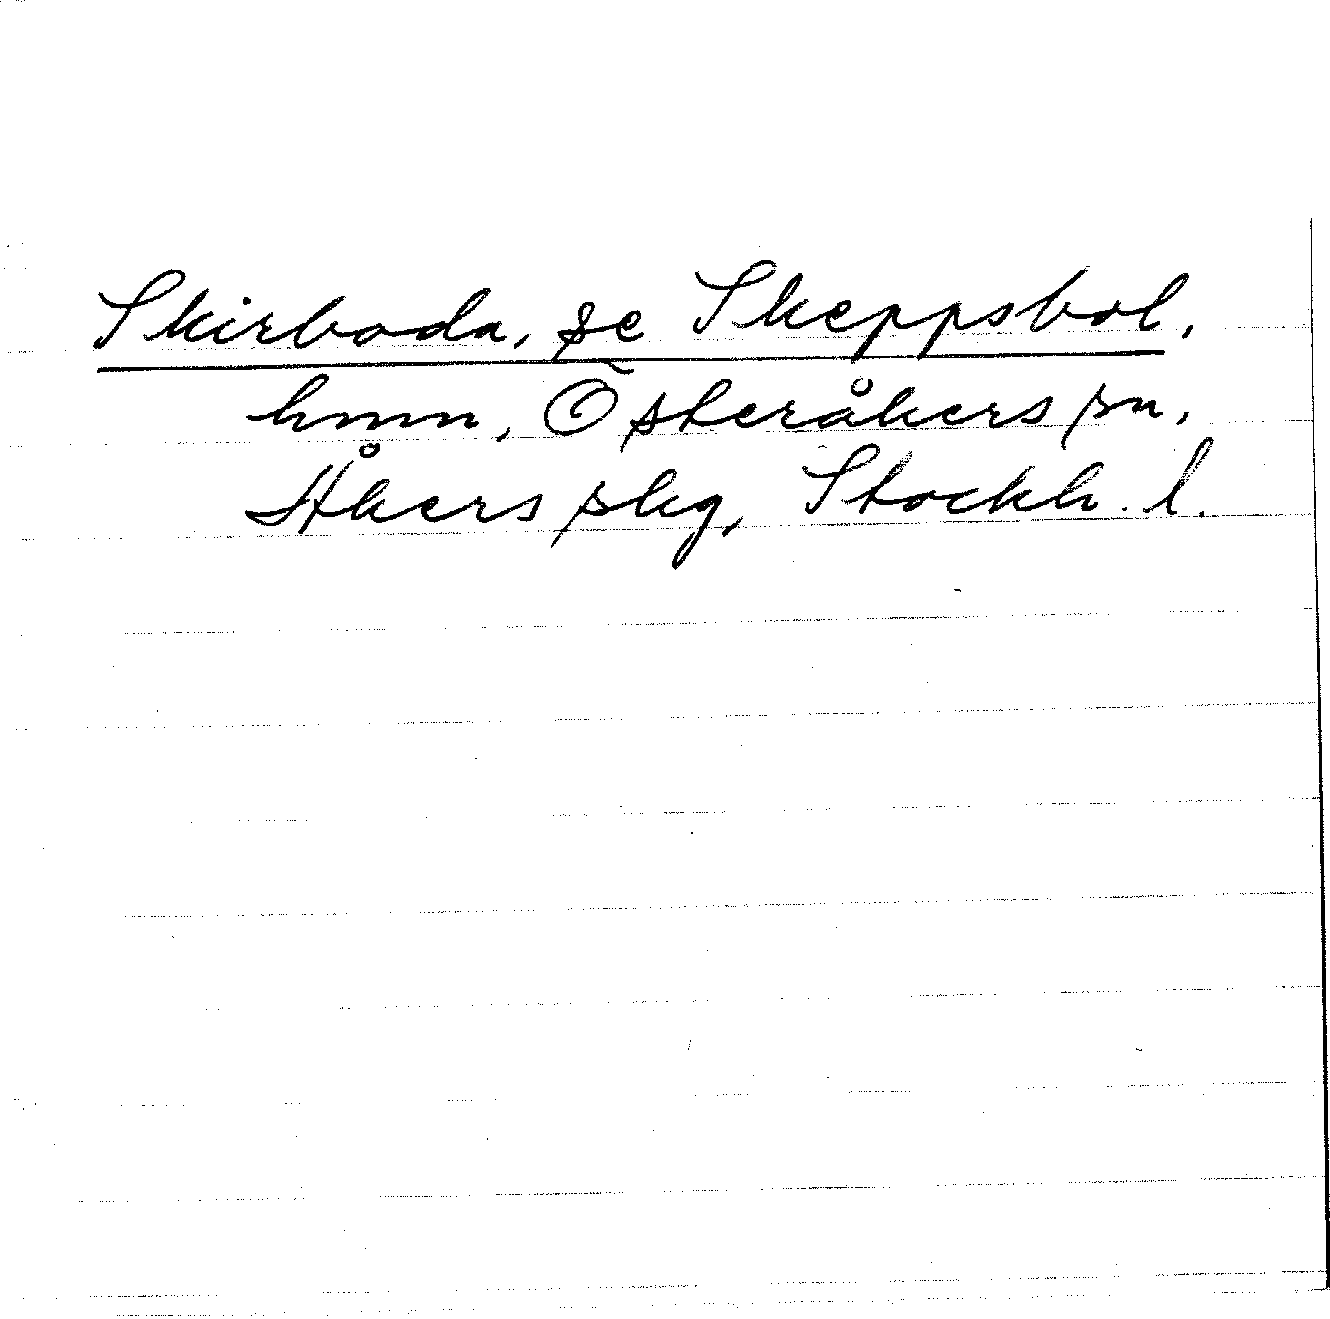 Skirboda, se Skeppsbol,
hmn, Österåkers sn,
Åkers skg, Stockh. l.